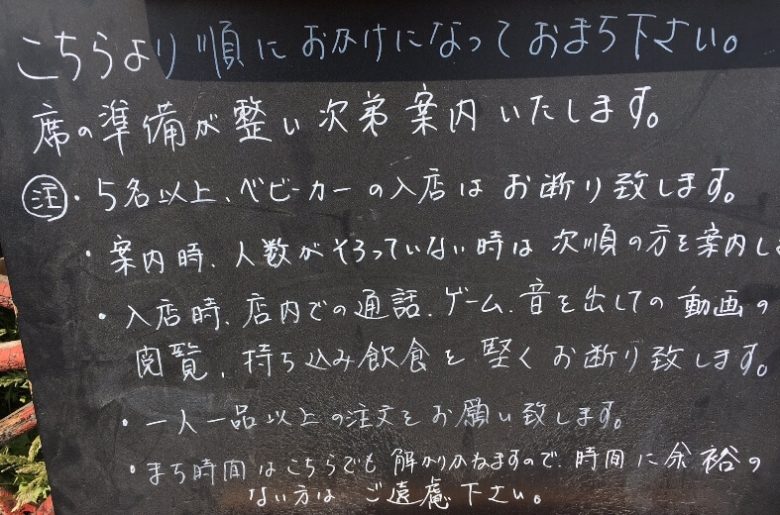 こちらより順におかけになっておまち下さい。
席の準備が整い次第案内いたします。
注・5名以上、ベビーカーの入店はお断り致します。
・案内時、人数がそろっていない時は次順の方を案内し
・入店時、店内での通話、ゲーム、音を出しての動画の
閲覧、持ち込み飲食を堅くお断り致します。
・一人一品以上の注文をお願い致します。
・まち時間はこちらでも解かりかねますので、時間に余裕の
ない方はご遠慮下さい。